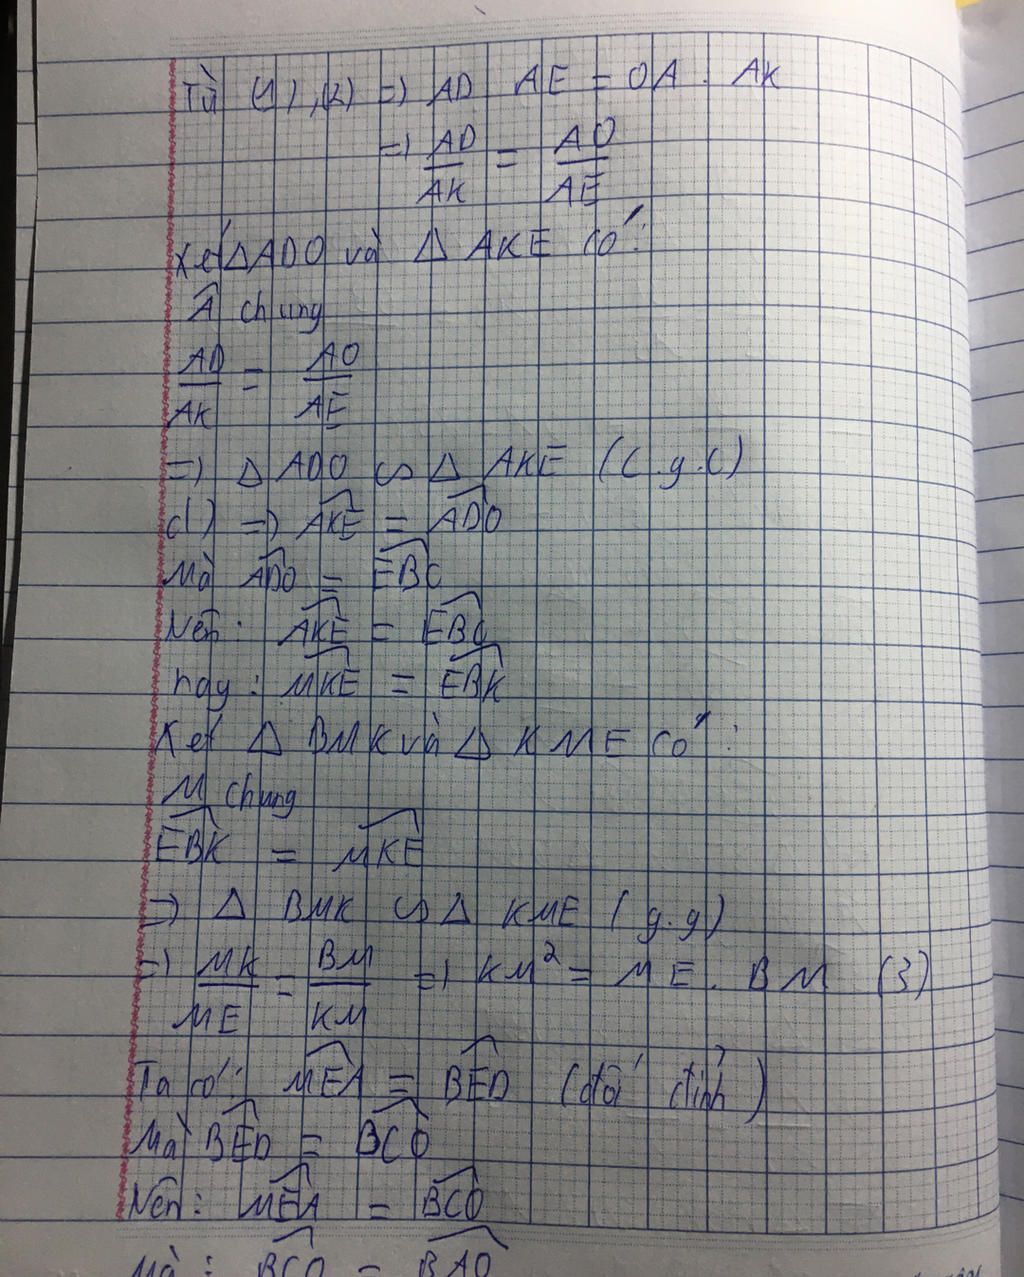 Từ (1), (2) => AD AE = OA . AK
=> AD/AK = AO/AE
Xét △ADO và △ AKE có:
Â chung
AD/AK = AO/AE
=> △ ADO ∽ △ AKE (c.g.c)
d) => AKE = ADO
Mà ADO = EBC
Nên: AKE = EBC
hay: MKE = EBK
Xét △ BMK và △ KME có:
M chung
EBK = MKE
=> △ BMK ∽ △ KME (g.g)
=> MK/ME = BM/KM => KM² = ME . BM (3)
Ta có: MEA = BED (đối đỉnh)
Mà BED = BCO
Nên: MEA = BCO
Mà: BCO = BAO